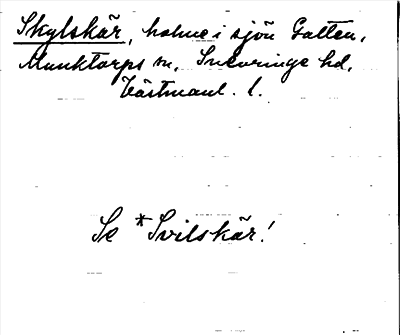 Skylskär, holme i sjön Galten,
Munktorps sn, Snevringe hd,
Västmanl. l.
Se *Svilskär!